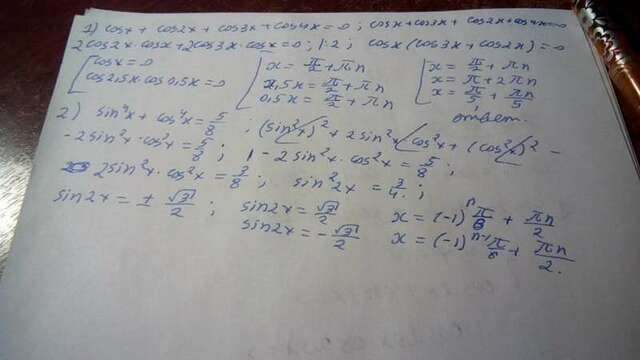 1) cosx + cos2x + cos3x + cos4x = 0 ; cosx + cos3x + cos2x + cos4x = 0
2cos2x · cosx + 2cos3x · cosx = 0 ; 1·2 ; cosx (cos3x + cos2x) = 0
cosx = 0 x = π/2 + πn x = π/2 + πn
cos2,5x · cos 0,5x = 0 2,5x = π/2 + πn x = π + 2πn
0,5x = π/2 + πn x = π/5 + πn/5
ответ.
2) sin⁴x + cos⁴x = 5/8 ; (sin²x)² + 2sin²x cos²x + (cos²x)² -
- 2sin²x · cos²x = 5/8 ; 1 - 2sin²x · cos²x = 5/8 ;
2sin²x · cos²x = 3/8 ; sin²2x = 3/4 ;
sin2x = ± √3/2 ; sin2x = √3/2 x = (-1)ⁿ π/6 + πn/2
sin2x = - √3/2 x = (-1)ⁿ⁻¹ π/6 + πn/2.